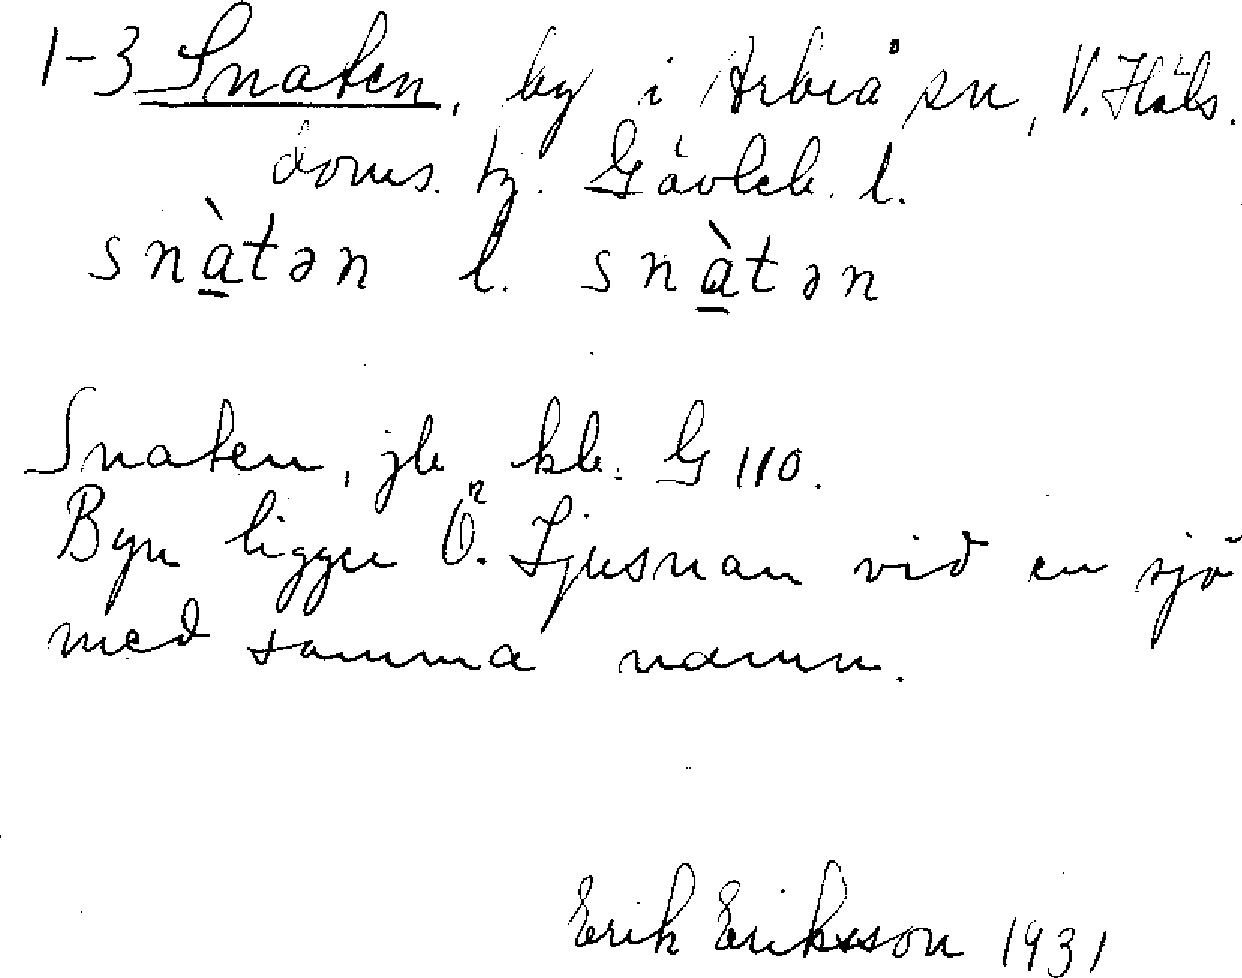 1-3 Snaten, by i Arbrå sn, V. Häls.
doms. h. Gävleb. l.
snàtən l. snàtən
Snaten, jb kb. G 110.
Byn ligger Ö. Ljusnan vid en sjö
med samma namn.
Erik Eriksson 1931